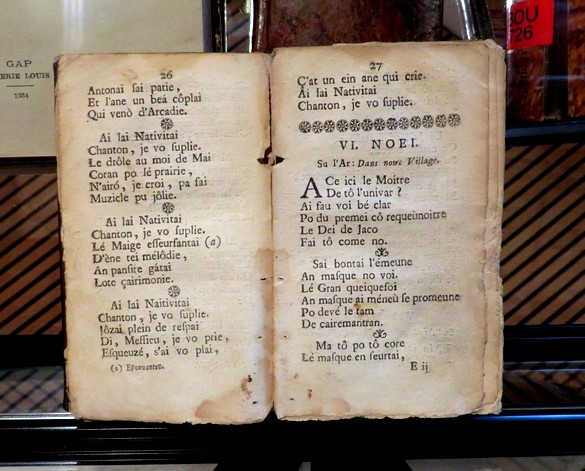 GAP
ERIE LOUIS
1934
BOU
726
26
Antonai sai patie,
Et l'ane un beá côplai
Qui venò d'Arcadie.
Ai lai Nativitai
Chanton, je vo suplie.
Le drôle au moi de Mai
Coran po lé prairie,
N'airó, je croi, pa fai
Muzicle pu jólie.
Ai lai Nativitai
Chanton, je vo suplie.
Lé Maige esseursantai (a)
D'ène tei mélôdie,
An pansire gâtai
Lote çairimonie.
Ai lai Naitivitai
Chanton, je vo suplie.
Jôzai plein de respai
Di, Messieu, je vo prie,
Esqueuzé, s'ai vo plai,
27
C'at un ein ane qui crie.
Ai lai Nativitai
Chanton, je vo suplie.
VI. NOEI.
Su l'Ar: Dans notre Village.
A Ce ici le Moitre
De tô l'univar ?
Ai fau voi bé clar
Po du premei cô requeinoitre
Le Dei de Jaco
Fai tô come no.
Sai bontai l'émeune
An masque no voi.
Lé Gran queiquefoi
An masque ai méneù se promeune
Po devé le tam
De cairemantran.
Ma tô po tô core
Lé masque en seurtai,
E ij